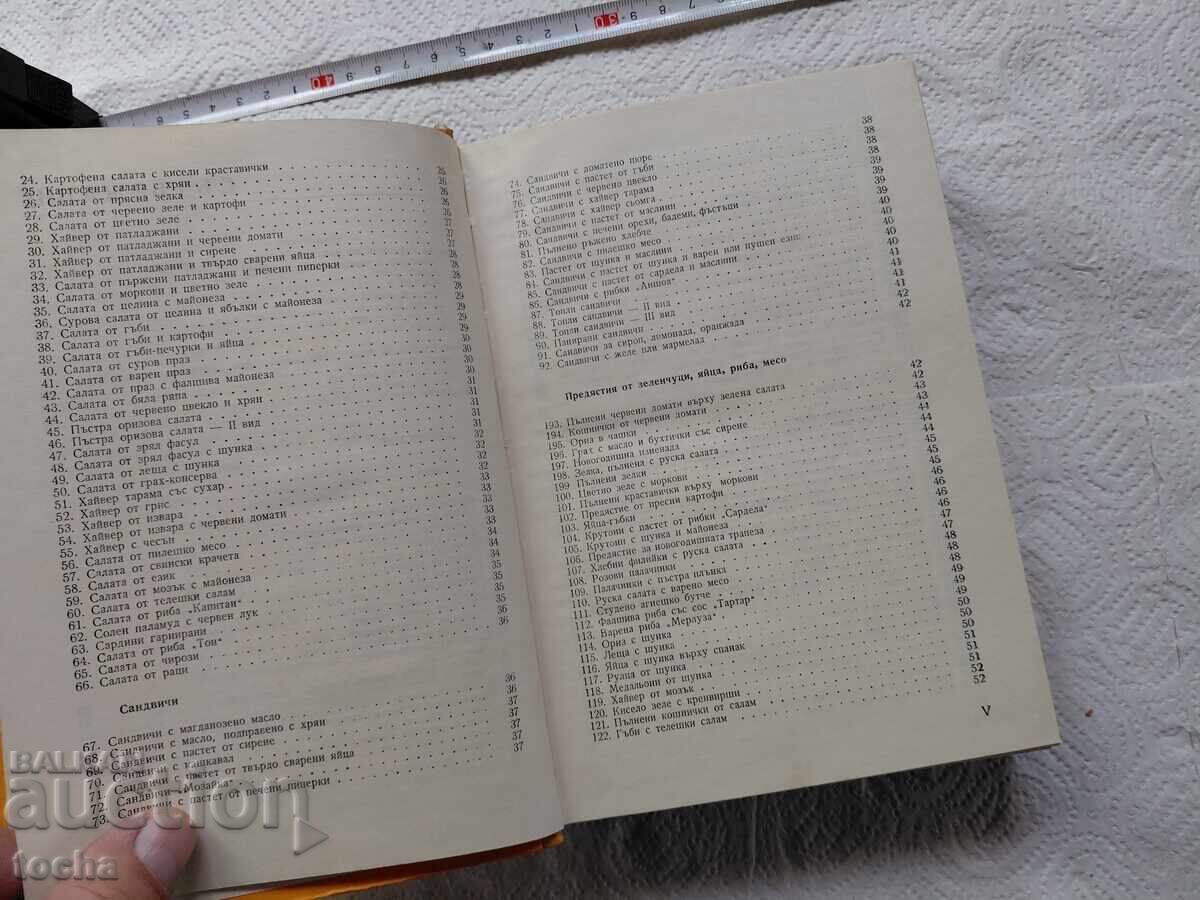 24. Картофена салата с кисели краставички 25
25. Картофена салата с хрян 26
26. Салата от прясна зелка 26
27. Салата от червено зеле и картофи 26
28. Салата от цветно зеле 26
29. Хайвер от патладжани 27
30. Хайвер от патладжани и червени домати 27
31. Хайвер от патладжани и сирене
32. Хайвер от патладжани и твърдо сварени яйца
33. Салата от пържени патладжани и печени пиперки
34. Салата от моркови и цветно зеле 28
35. Салата от целина с майонеза
36. Сурова салата от целина и ябълки с майонеза 29
37. Салата от гъби 29
38. Салата от гъби и картофи 29
39. Салата от гъби-печурки и яйца
40. Салата от суров праз 30
41. Салата от варен праз 30
42. Салата от праз с фалшива майонеза 30
43. Салата от бяла ряпа
44. Салата от червено цвекло и хрян 31
45. Пъстра оризова салата 31
46. Пъстра оризова салата — II вид 31
47. Салата от зрял фасул
48. Салата от зрял фасул с шунка 32
49. Салата от леща с шунка 32
50. Салата от грах-консерва 32
51. Хайвер тарама със сухар 33
52. Хайвер от грис 33
53. Хайвер от извара 33
54. Хайвер от извара с червени домати
55. Хайвер с чесън 34
56. Салата от пилешко месо 34
57. Салата от свински крачета 34
58. Салата от език 35
59. Салата от мозък с майонеза 35
60. Салата от телешки салам 35
61. Салата от риба „Капитан" 35
62. Солен паламуд с червен лук 36
63. Сардини гарнирани 36
64. Салата от риба „Тон"
65. Салата от чирози
66. Салата от раци
Сандвичи
67. Сандвичи с магданозено масло 36
68. Сандвичи с масло, подправено с хрян 36
69. Сандвичи с пастет от сирене 37
70. Сандвичи с кашкавал 37
71. Сандвичи с пастет от твърдо сварени яйца 37
72. Сандвичи „Мозайка" 37
73. Сандвичи с пастет от печени пиперки 37
74. Сандвичи с доматено пюре 38
75. Сандвичи с пастет от гъби 38
76. Сандвичи с червено цвекло 38
77. Сандвичи с хайвер тарама 38
78. Сандвичи с хайвер сьомга 39
79. Сандвичи с пастет от маслини 39
80. Сандвичи с печени орехи, бадеми, фъстъци 39
81. Пълнено ръжено хлебче 39
82. Сандвичи с пилешко месо 40
83. Пастет от шунка и маслини 40
84. Сандвичи с пастет от шунка и варен или пушен език 40
85. Сандвичи с пастет от сардела и маслини 40
85. Сандвичи с рибки „Аншоа" 41
87. Топли сандвичи 41
88. Топли сандвичи — II вид 41
89. Топли сандвичи — III вид 41
90. Панирани сандвичи 42
91. Сандвичи за сироп, лимонада, оранжада
92. Сандвичи с желе или мармелад
Предястия от зеленчуци, яйца, риба, месо
193. Пълнени червени домати върху зелена салата 42
194. Кошнички от червени домати 42
195. Ориз в чашки 43
196. Грах с масло и бухтички със сирене 43
197. Новогодишна изненада 44
198. Зелка, пълнена с руска салата 44
199 Пълнени зелки 44
100. Цветно зеле с моркови 45
101. Пълнени краставички върху моркови 45
102. Предястие от пресни картофи 45
103. Яйца-гъбки 46
104. Крутони с пастет от рибки „Сардела" 46
105. Крутони с шунка и майонеза 46
106. Предястие за новогодишната трапеза 47
107. Хлебни филийки с руска салата 47
108. Розови палачинки 48
109. Палачинки с пъстра плънка 48
110. Руска салата с варено месо 48
111. Студено агнешко бутче 49
112. Фалшива риба със сос „Тартар" 49
113. Варена риба „Мерлуза" 50
114. Ориз с шунка 50
115. Леща с шунка 50
116. Яйца с шунка върху спанак 51
117. Рулца от шунка 51
118. Медальони от шунка 52
119. Хайвер от мозък 52
120. Кисело зеле с кренвирши
121. Пълнени кошнички от салам
122. Гъби с телешки салам
V
БАЛКАН
auction
tocha